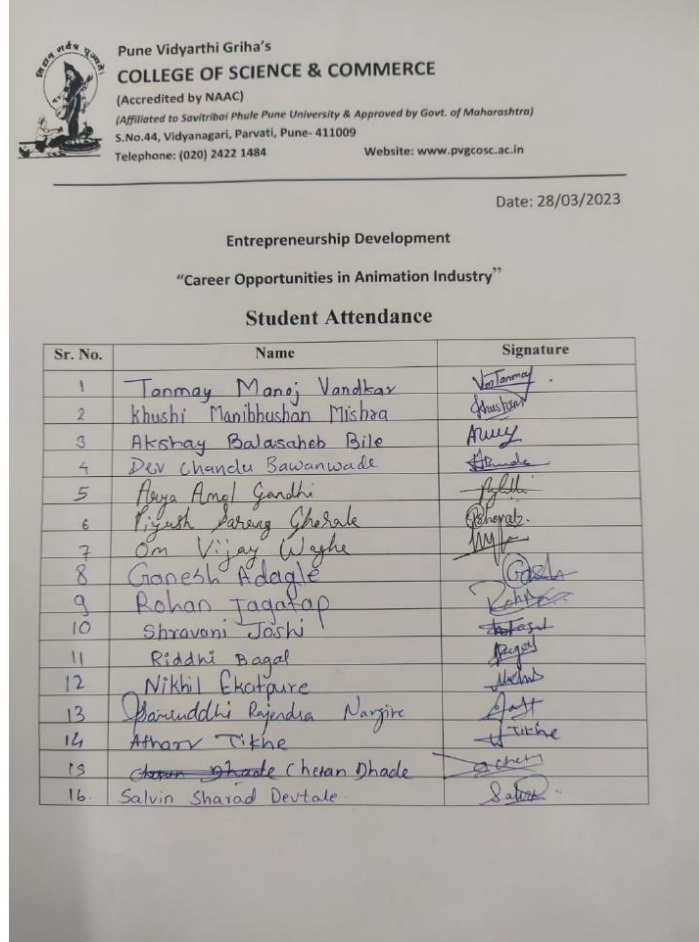 विद्यान सर्वत्र पूज्यते।
Pune Vidyarthi Griha's
COLLEGE OF SCIENCE & COMMERCE
(Accredited by NAAC)
(Affiliated to Savitribai Phule Pune University & Approved by Govt. of Maharashtra)
S.No.44, Vidyanagari, Parvati, Pune- 411009
Telephone: (020) 2422 1484 Website: www.pvgcosc.ac.in
Date: 28/03/2023
Entrepreneurship Development
"Career Opportunities in Animation Industry"
Student Attendance
Sr. No. Name Signature
1 Tanmay Manoj Vandkar VmTanmay
2 Khushi Manibhushan Mishra
3 Akshay Balasaheb Bile
4 Dev Chandu Bawanwade
5 Arya Amol Gandhi
6 Piyush Sarang Ghorale
7 Om Vijay Waghe
8 Ganesh Adagle
9 Rohan Jagatap
10 Shravani Joshi
11 Riddhi Bagal
12 Nikhil Ekatpure
13 Rajendra
14 Atharv Tikhe Tikhe
15 Chetan Dhade
16. Salvin Sharad Devtale